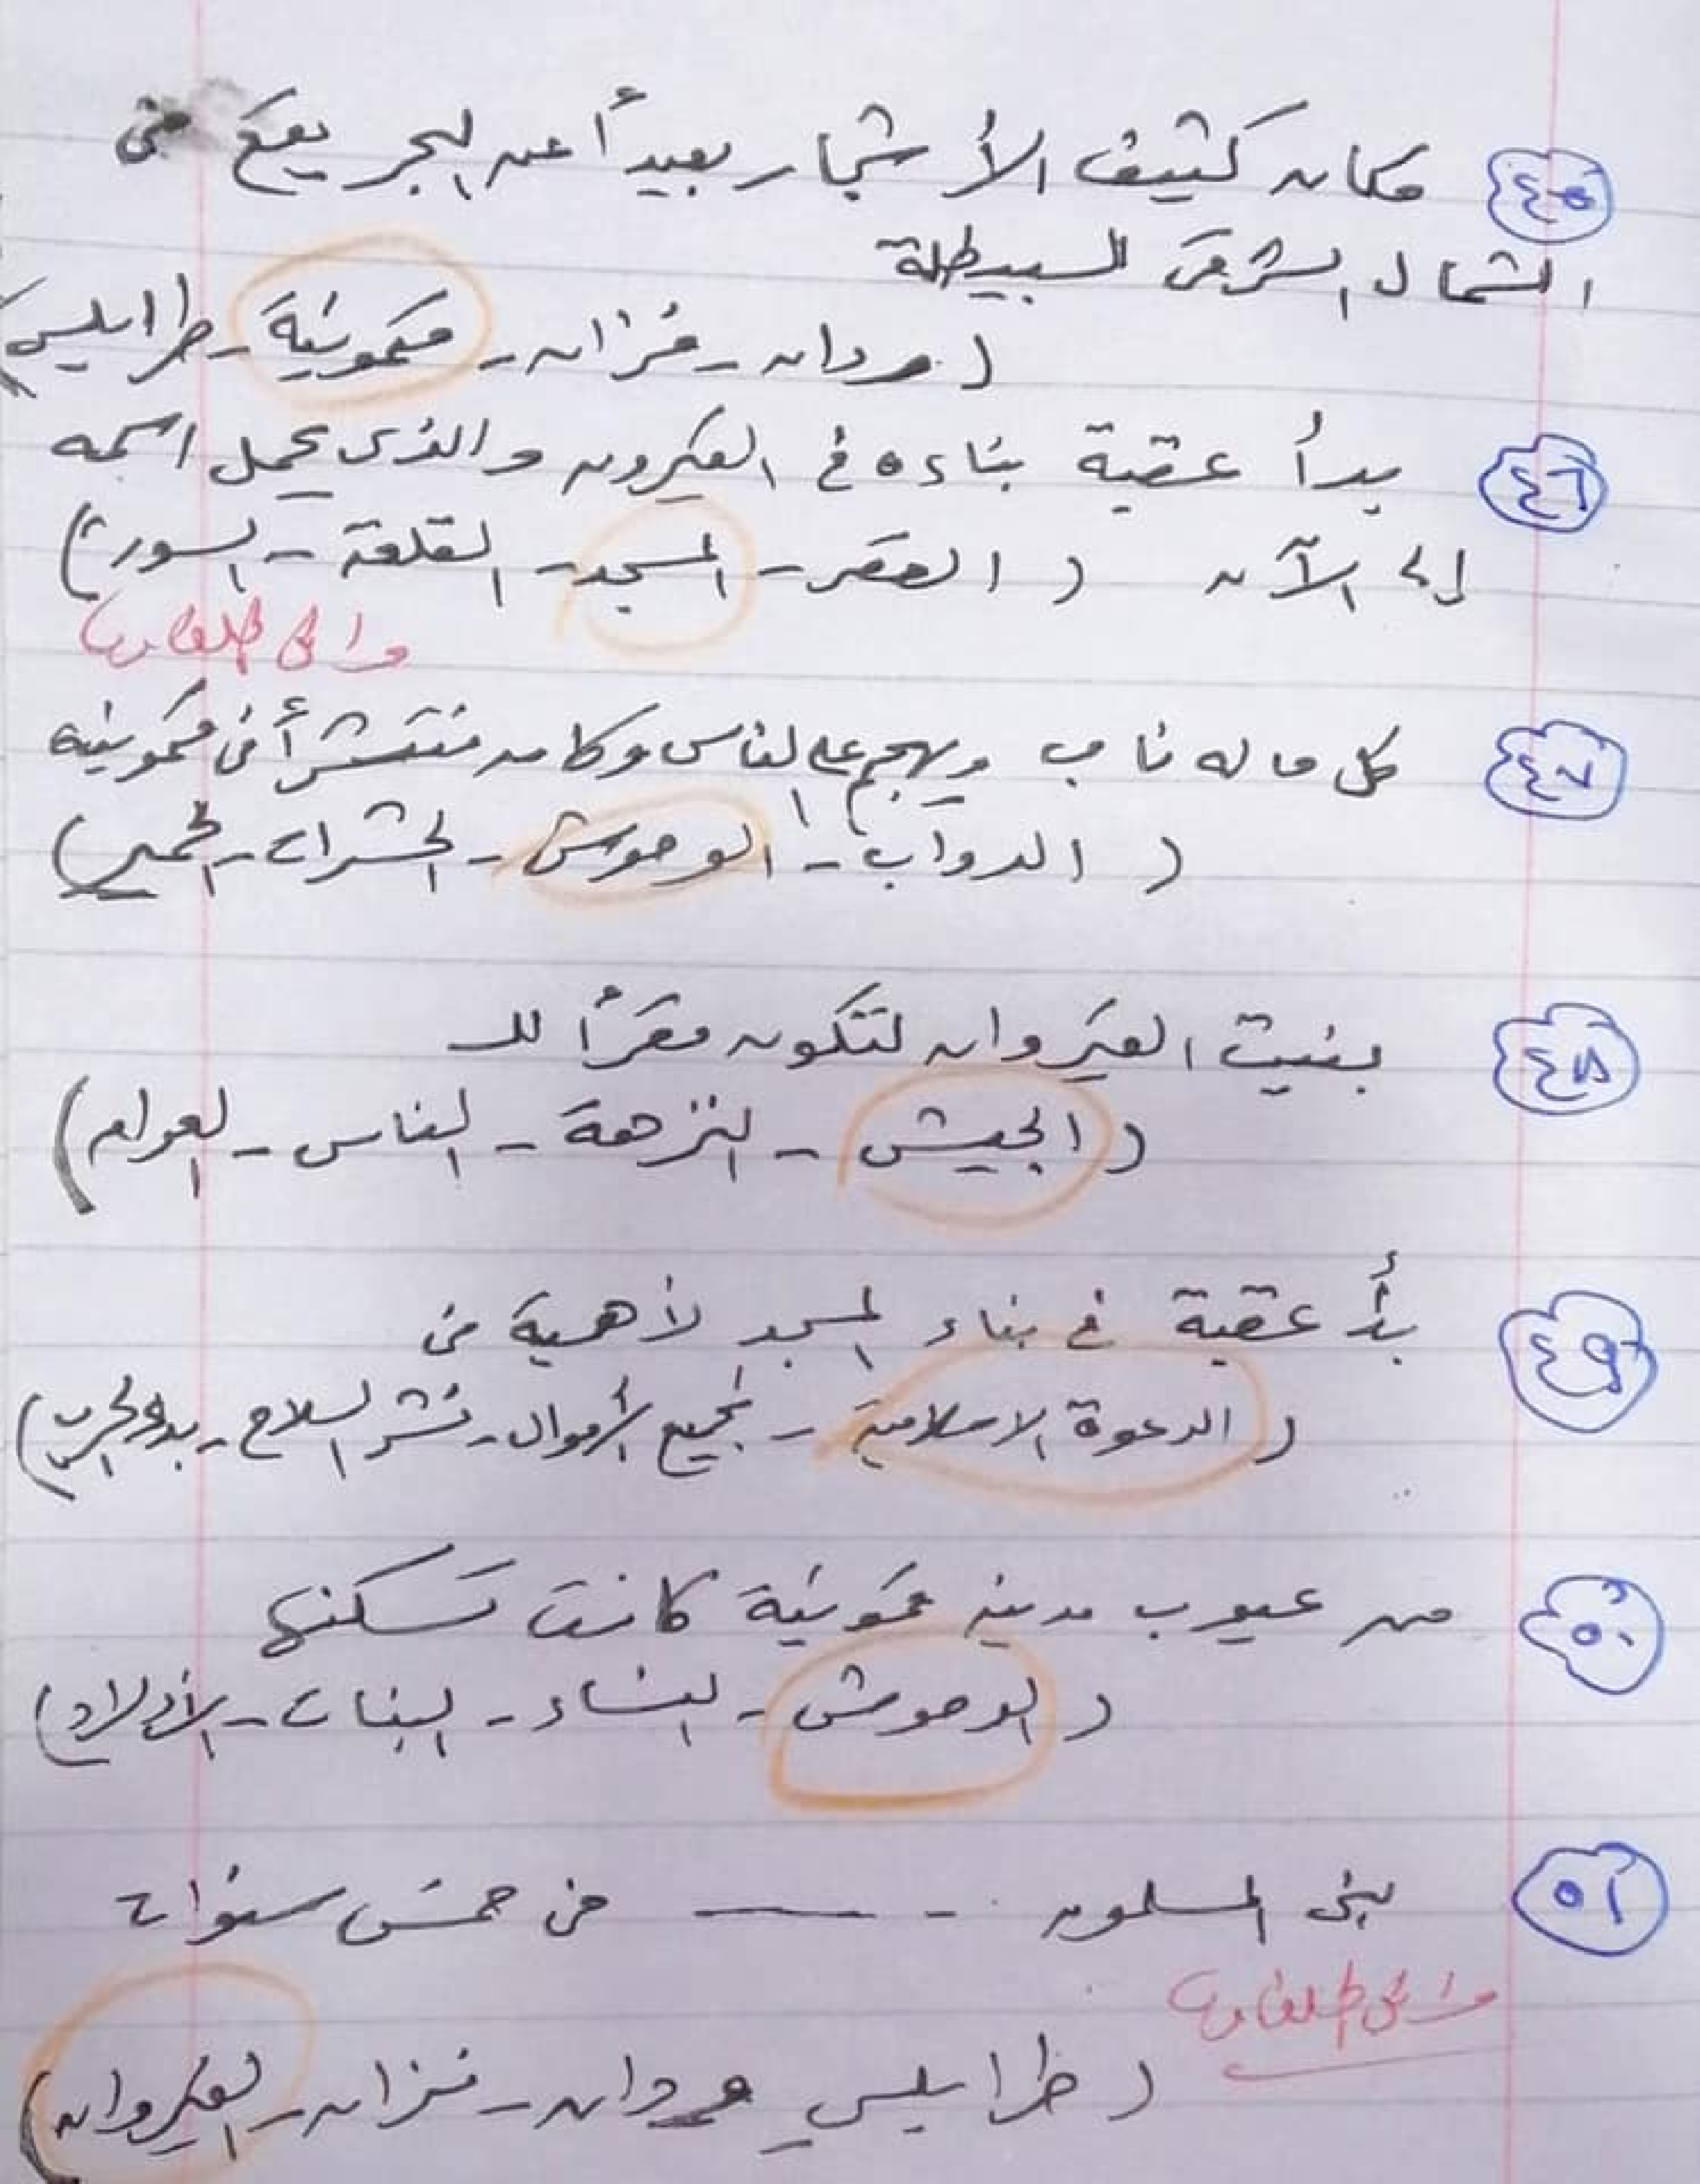 ٤٥ مكان كثيف الأشجار بعيداً عن البحر يقع فى
الشمال الشرقى لسبيطلة
( ودان - فزان - قمونية - طرابلس )
٤٦ بدأ عقبة بناءه فى القيروان والذى يحمل اسمه
إلى الآن ( القصر - المسجد - القلعة - السور )
٤٧ كل ما له ناب ويهجم على الناس وكان منتشراً فى قمونية
( الدواب - الوحوش - الحشرات - الحمير )
٤٨ بنيت القيروان لتكون مقراً للـ
( الجيش - النزهة - الناس - العوام )
٤٩ بدأ عقبة فى بناء المسجد لأهمية فى
( الدعوة الاسلامية - تجميع الأموال - نشر السلاح - بدء الحرب )
٥٠ من عيوب مدينة قمونية كانت تسكنها
( الوحوش - النساء - البنات - الأولاد )
٥١ بنى المسلمون - ـــــ فى خمس سنوات
( طرابلس ودان - فزان - القيروان )